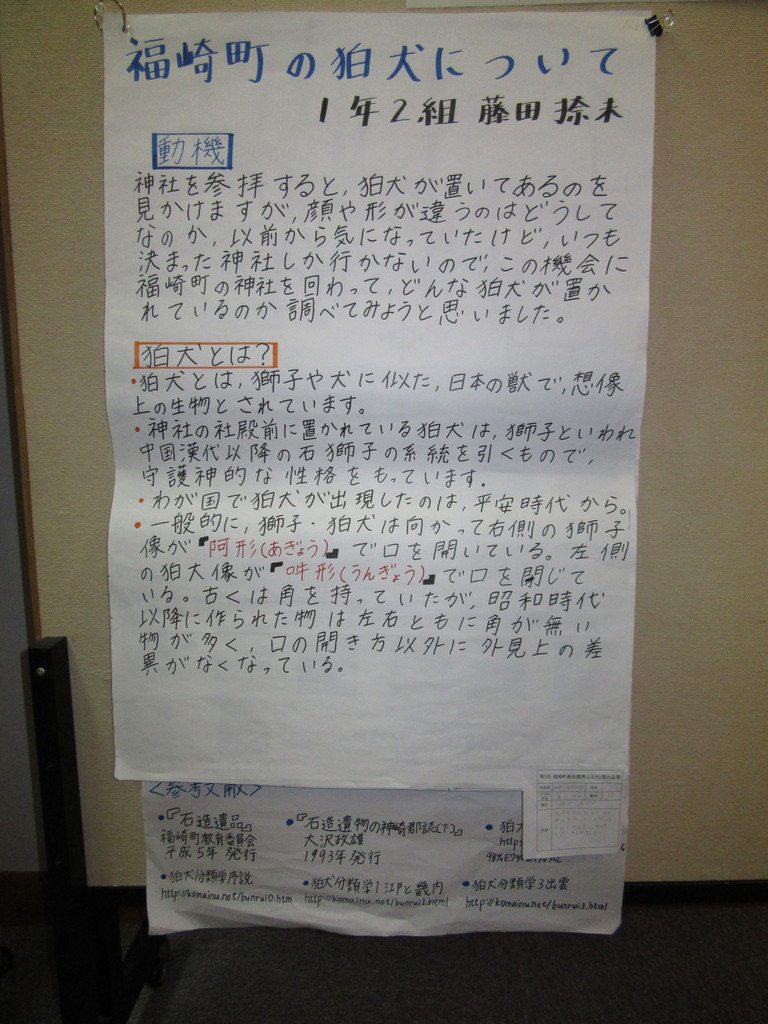 福崎町の狛犬について
1年2組 藤田捺未
動機
神社を参拝すると,狛犬が置いてあるのを
見かけますが,顔や形が違うのはどうして
なのか,以前から気になっていたけど,いつも
決まった神社しか行かないので,この機会に
福崎町の神社を回わって,どんな狛犬が置か
れているのか調べてみようと思いました。
狛犬とは?
・狛犬とは,獅子や犬に似た,日本の獣で,想像
上の生物とされています。
・神社の社殿前に置かれている狛犬は,獅子といわれ
中国漢代以降の石獅子の系統を引くもので,
守護神的な性格をもっています。
・わが国で狛犬が出現したのは,平安時代から。
・一般的に,獅子・狛犬は向かって右側の獅子
像が『阿形(あぎょう)』で口を開いている。左側
の狛犬像が『吽形(うんぎょう)』で口を閉じて
いる。古くは角を持っていたが,昭和時代
以降に作られた物は左右ともに角が無い
物が多く,口の開き方以外に外見上の差
異がなくなっている。
<参考文献>
・『石造遺品』
福崎町教育委員会
平成5年発行
・『石造遺物の神崎郡誌(下)』
大沢政雄
1993年発行
・狛
http
・狛犬分類学序説
http://komainu.net/bunrui0.htm
・狛犬分類学1江戸と畿内
http://komainu.net/bunrui1.html
・狛犬分類学3出雲
http://komainu.net/bunrui3.html